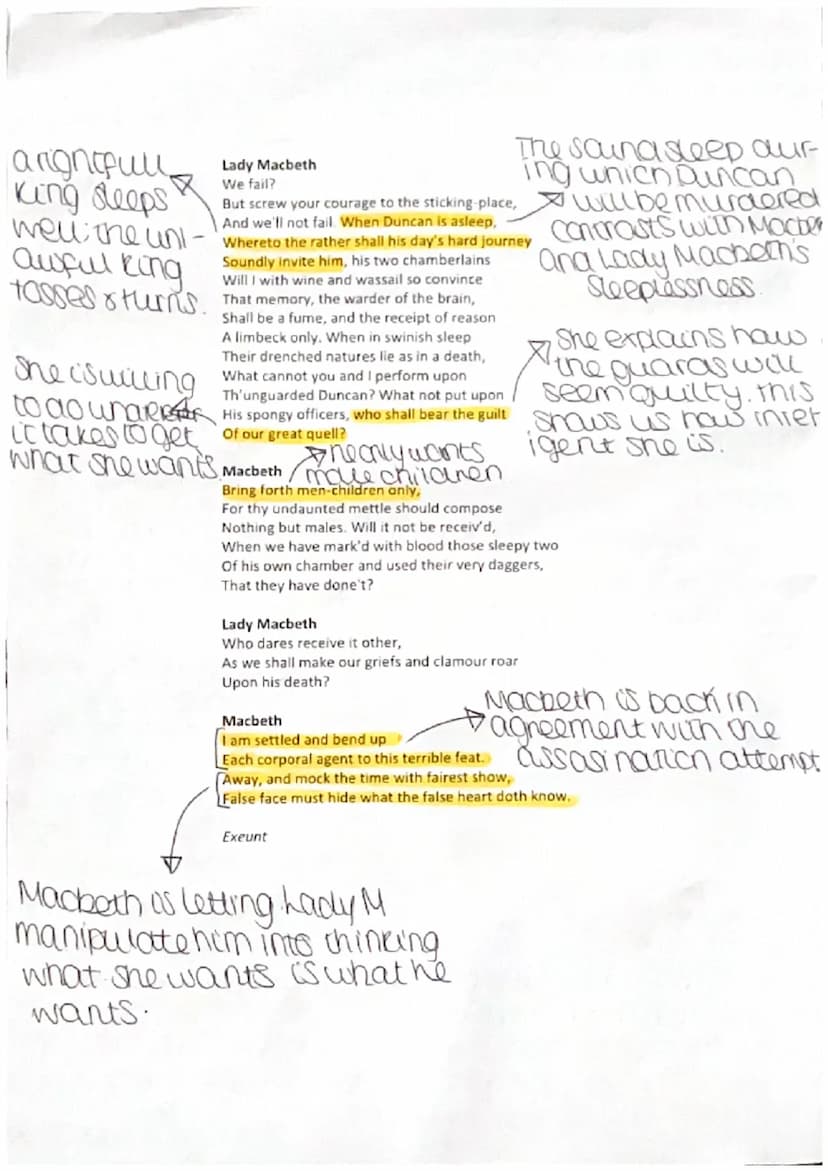 a rightfull
King sleeps
well; the unl-
awful King
tosses & turns.
The sound sleep dur-
ing which Duncan
will be murdered
contrasts with Macbe
and Lady Macbeth's
sleeplessness.
Lady Macbeth
We fail?
But screw your courage to the sticking-place,
And we'll not fail. When Duncan is asleep,
Whereto the rather shall his day's hard journey
Soundly invite him, his two chamberlains
Will I with wine and wassail so convince
That memory, the warder of the brain,
Shall be a fume, and the receipt of reason
A limbeck only. When in swinish sleep
Their drenched natures lie as in a death,
What cannot you and I perform upon
Th'unguarded Duncan? What not put upon
His spongy officers, who shall bear the guilt
Of our great quell?
she is willing
to do
it takes to get
what she wants.
She explains how
the guards will
seem guilty. This
shows us how intel
igent she is.
he only wants
male children
Macbeth
Bring forth men-children only,
For thy undaunted mettle should compose
Nothing but males. Will it not be receiv'd,
When we have mark'd with blood those sleepy two
Of his own chamber and used their very daggers,
That they have done't?
Lady Macbeth
Who dares receive it other,
As we shall make our griefs and clamour roar
Upon his death?
Macbeth
I am settled and bend up
Each corporal agent to this terrible feat.
Away, and mock the time with fairest show,
False face must hide what the false heart doth know.
Macbeth is back in
agreement with the
assasination attempt.
Exeunt
Macbeth is letting Lady M
manipulate him into thinking
what she wants is what he
wants.